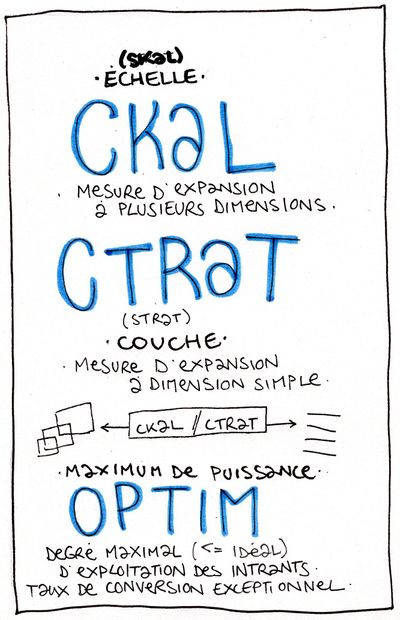 (SKal)
·ÉCHELLE·
CKaL
· MESURE D'EXPANSION
à PLUSIEURS DIMENSIONS.
CTRaT
(STRaT)
·COUCHE·
· MESURE D'EXPANSION
à DIMENSION SIMPLE.
CKaL // CTRAT
·MAXIMUM DE PUISSANCE·
OPTIM
DEGRÉ MAXIMAL (<= IDÉAL)
D'EXPLOITATION DES INTRANTS.
TAUX DE CONVERSION EXCEPTIONNEL.